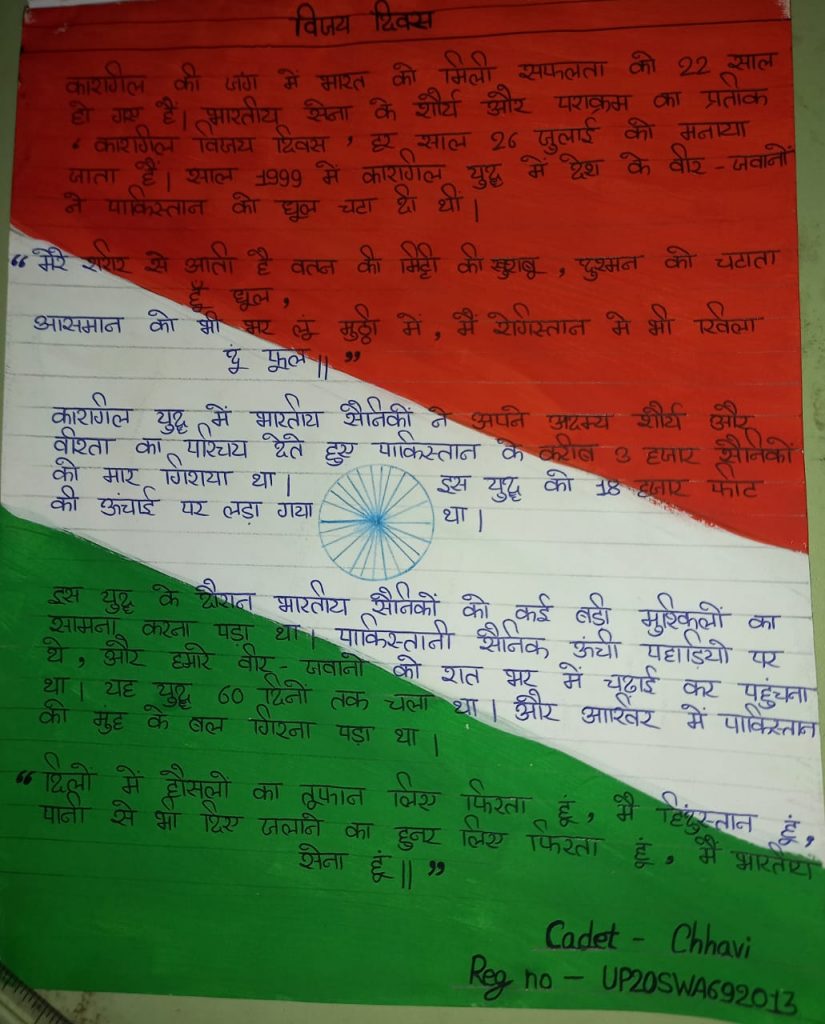 विजय दिवस
कारगिल की जंग में भारत को मिली सफलता को 22 साल
हो गए हैं। भारतीय सेना के शौर्य और पराक्रम का प्रतीक
' कारगिल विजय दिवस ' हर साल 26 जुलाई को मनाया
जाता हैं। साल 1999 में कारगिल युद्ध में देश के वीर - जवानों
ने पाकिस्तान को धूल चटा दी थी।
“ मेरे शरीर से आती है वतन की मिट्टी की खुशबू , दुश्मन को चटाता
हूँ धूल ,
आसमान को भी भर लूं मुठ्ठी में , मैं रेगिस्तान मे भी खिला
दूं फूल॥ ”
कारगिल युद्ध में भारतीय सैनिकों ने अपने अदम्य शौर्य और
वीरता का परिचय देते हुए पाकिस्तान के करीब 3 हजार सैनिकों
को मार गिराया था। इस युद्ध को 18 हजार फीट
की ऊंचाई पर लड़ा गया था।
इस युद्ध के दौरान भारतीय सैनिकों को कई बडी मुश्किलों का
सामना करना पड़ा था। पाकिस्तानी सैनिक ऊंची पहाड़ियो पर
थे , और हमारे वीर - जवानों को रात भर में चढ़ाई कर पहुंचना
था। यह युद्ध 60 दिनों तक चला था। और आखिर में पाकिस्तान
को मुंह के बल गिरना पड़ा था।
“ दिलों में हौसलों का तूफान लिए फिरता हूं , मैं हिंदुस्तान हूं ,
पानी से भी दिए जलाने का हुनर लिए फिरता हूं , मैं भारतीय
सेना हूं॥ ”
Cadet - Chhavi
Reg no - UP20SWA692013